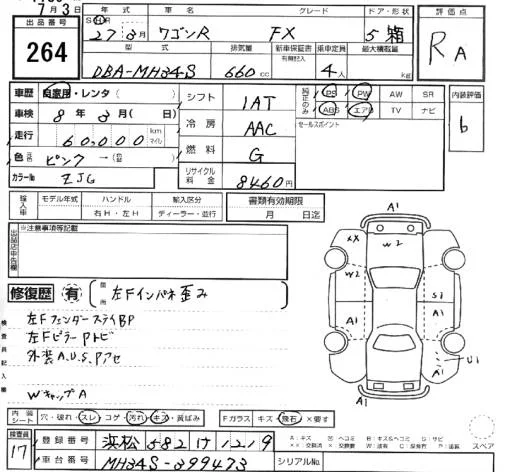 7月3日
出品番号
264
年式 車名 グレード ドア・形状
S H R
27年3月 ワゴンR FX 5 箱
型式 排気量 新車保証書 乗車定員 最大積載量
有無記入
DBA-MH34S 660cc 4人 kg
評価点
R A
車歴 自家用・レンタ( )
車検 8年3月( 日)
走行 60,000 km マイル
色 ピンク → (色替)
カラーNo ZJG
シフト 1AT
冷房 AAC
燃料 G
リサイクル料金 8460円
純正のみ PS PW AW SR
ABS エアB TV ナビ
セールスポイント
内装評価
b
輸入車 モデル年式 ハンドル 輸入区分
右H・左H ディーラー・並行
書類有効期限
月 日迄
出品店申告欄
※注意事項等記載
修復歴 有
箇所 左Fインパネ歪み
検査員記入欄
左FフェンダーステイBP
左FピラーPトビ
外装A.U.S.Pアセ
WキャップA
A1
XX W2
A1 A1
W2
S1
A1 A1
U1
A1
内装シート 穴・破れ・スレ・コゲ・汚れ・キズ・黄ばみ
Fガラス キズ・飛石・×要す
検査員
17
登録番号 浜松 582 け 1219
車台番号 MH34S-399473
シリアルNo
A：キズ
スペア